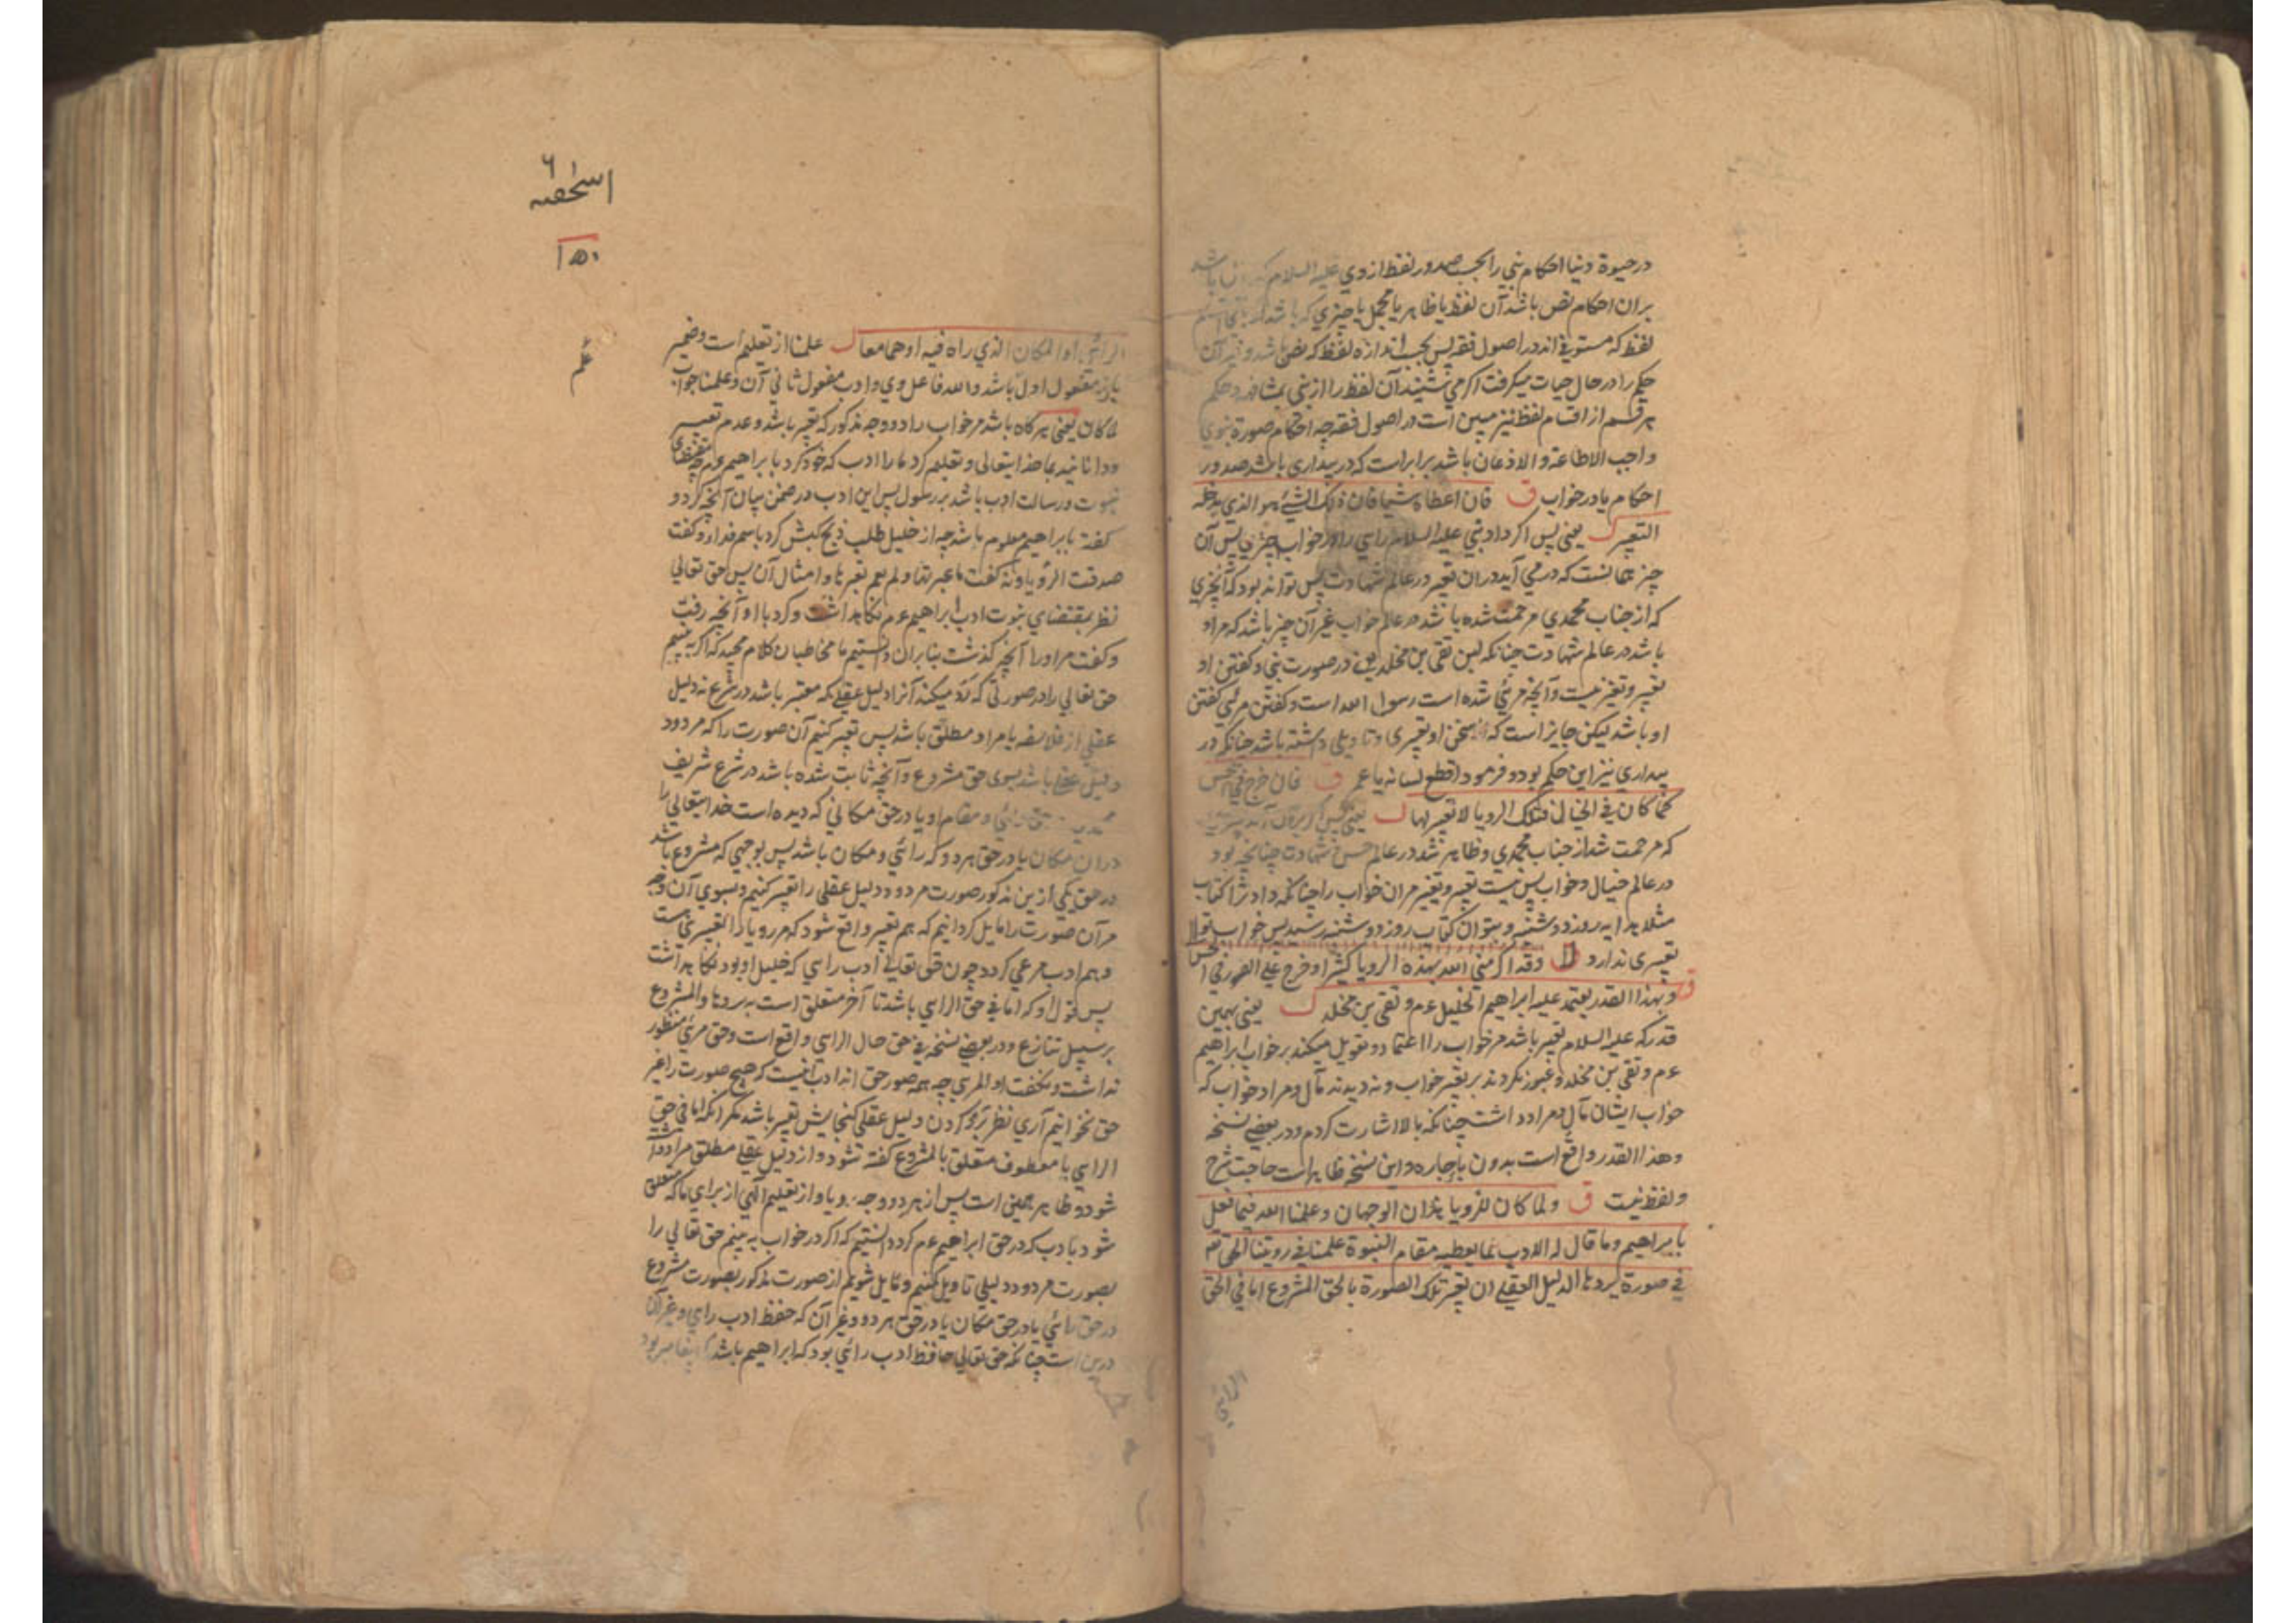 در حیوة دنیا احکام نبی را بحسب صدور لفظ از وی علیه السلام که آن باشد
بران احکام نص باشد آن لفظ یا ظاهر یا مجمل یا چیزی که باشد از
لفظ که مستوفی اند در اصول فقه پس بحسب اندازه لفظ که نص باشد و غیر آن
حکم را در حال حیات میکرفت اکر می شنیدند آن لفظ را از نبی بمشافهه و حکم
هر قسم از اقسام لفظ نیز مبین است در اصول فقه چه احکام صورة نبوی
واجب الاطاعة و الاذعان باشد برابر است که در بیداری باشد صدور
احکام یا در خواب ق فان اعطاه شیا فان ذلک الشئ هو الذی یدخله
التعبیر ل یعنی پس اکر داد نبی علیه السلام رایی را در خواب چیزی پس آن
چیز همانست که در می آید دران تعبیر در عالم شهادت پس تواند بود که آنچیزی
که از جناب محمدی مرحمت شده باشد در عالم خواب غیر آن چیز باشد که مراد
باشد در عالم شهادت چنانکه لبن تقی بن مخلد پس در صورت نبی و کفتن او
تعبیر و تغیر نیست و آنچه مرئی شده است رسول الله است و کفتن مرئی کفتن
او باشد لیکن جایز است که سخن او تعبیری و تاویلی داشته باشد چنانکه در
بیداری نیز این حکم بود و فرمود اقطع لسانه یا عمر ق فان خرج فی الحس
کما کان فی الخیال فتلک الرویا لا تعبیر لها ل یعنی پس اکر برون آمد
که مرحمت شد از جناب محمدی و ظاهر شد در عالم حس و شهادت چنانچه بود
در عالم خیال و خواب پس نیست تعبیر و تغییر مران خواب را چنانکه داد ترا کتاب
مثلا هدایه روز دوشنبه و بتو آن کتاب روز دوشنبه رسید پس خواب تو
تعبیری ندارد و قد اکرمنی الله بهذه الرویا کثیرا و خرج علی الصورة فی الحس
ق و بهذا القدر یعتمد علیه ابراهیم الخلیل عم و تقی بن مخلد ل یعنی بهمین
قدر که علیه السلام تعبیر باشد مر خواب را اعتماد و تعویل میکند بر خواب ابراهیم
عم و تقی بن مخلد و عبور نکردند بر تعبیر خواب و ندیدند مآل و مراد خواب که
خواب ایشان مآل و مراد داشت چنانکه بالا اشارت کردم و در بعضی نسخه
و هذا القدر واقع است بدون با جاره و این نسخه ظاهر است حاجت شرح
و لفظ نیست ق و لما کان للرویا هذان الوجهان و علمنا الله فیما فعل
بابراهیم و ما قال له الادب لما یعطیه مقام النبوة علمنا فی رویتنا الحق تع
فی صورة یردها الدلیل العقلی ان نعبر تلک الصورة بالحق المشروع اما فی الحق
الرائی
اسحٰقیه
٦
١٥٠
علم
الرائی او المکان الذی راه فیه او هما معا ل علمنا از تعلیم است و ضمیر
بارز مفعول اول باشد و الله فاعل وی و ادب مفعول ثانی آن و علمنا جواب
لما کان یعنی هر کاه باشد مر خواب را دو وجه مذکور که تعبیر باشد و عدم تعبیر
و دانانید ما خدایتعالی و تعلیم کرد ما را ادب که خود کرد با ابراهیم عم چه مقتضای
نبوت و رسالت ادب باشد بر رسول پس این ادب در ضمن بیان آنچه کرد و
کفت بابراهیم معلوم باشد چه از خلیل طلب ذبح کبش کرد باسم فدا و کفت
صدقت الرویا و نه کفت ما عبرتها و لم لم تعبرها و امثال آن پس حق تعالی
نظر بمقتضای نبوت ادب ابراهیم عم نکاهداشت و کرد با او آنچه رفت
و کفت مر او را آنچه کذشت بنابران دانستیم ما مخاطبان کلام مجید که اکر به بینیم
حق تعالی را در صورتی که رد میکند آنرا دلیل عقلی که معتبر باشد در شرع نه دلیل
عقلی از فلاسفه یا مراد مطلق باشد پس تعبیر کنیم آن صورت را که مردود
دلیل عقلی باشد بسوی حق مشروع و آنچه ثابت شده باشد در شرع شریف
حق رائی و مقام او یا در حق مکانی که دیده است خدایتعالی را
دران مکان یا در حق هر دو که رائی و مکان باشد پس بوجهی که مشروع باشد
در حق یکی ازین مذکور صورت مردود دلیل عقلی را تعبیر کنیم و بسوی آن وجه
مر آن صورت را مایل کردانیم که هم تعبیر واقع شود که مر رویا را تعبیری است
و هم ادب مرعی کردد چون حق تعالی ادب رایی که خلیل او بود نکاهداشت
پس قول او که اما فی حق الرایی باشد تا آخر متعلق است به یردها و المشروع
بر سبیل تنازع و در بعضی نسخه فی حق حال الرایی واقع است و حق مرئی منظور
نداشت و نکفت او المرئی چه همه صور حق اند ادب نیست که هیچ صورت را غیر
حق نخوانیم آری نظر بر رد کردن دلیل عقلی کنجایش تعبیر باشد مکر آنکه اما فی حق
الرایی با معطوف متعلق بالمشروع کفته شود و از دلیل عقلی مطلق مراد داشته
شود و ظاهر همین است پس از هر دو وجه رویا و از تعلیم الهی از برای ما که متعلق
شود بادب که در حق ابراهیم عم کرد دانستیم که اکر در خواب به بینیم حق تعالی را
بصورت مردود دلیلی تاویل کنیم و مایل شویم از صورت مذکور بصورت مشروع
در حق رائی یا در حق مکان یا در حق هر دو و غیر آن که حفظ ادب رایی و غیر آن
درین است چنانکه حق تعالی حافظ ادب رائی بود که ابراهیم باشد